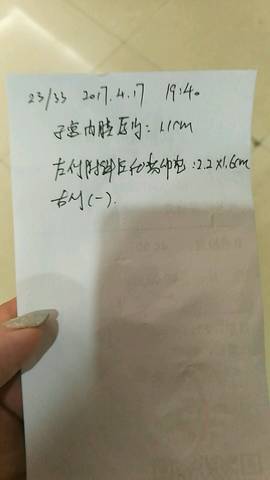 23/33 2017.4.17 19:40
子宫内膜厚约: 1.1cm
左侧附件区优势卵泡: 2.2×1.6cm
右侧(-).